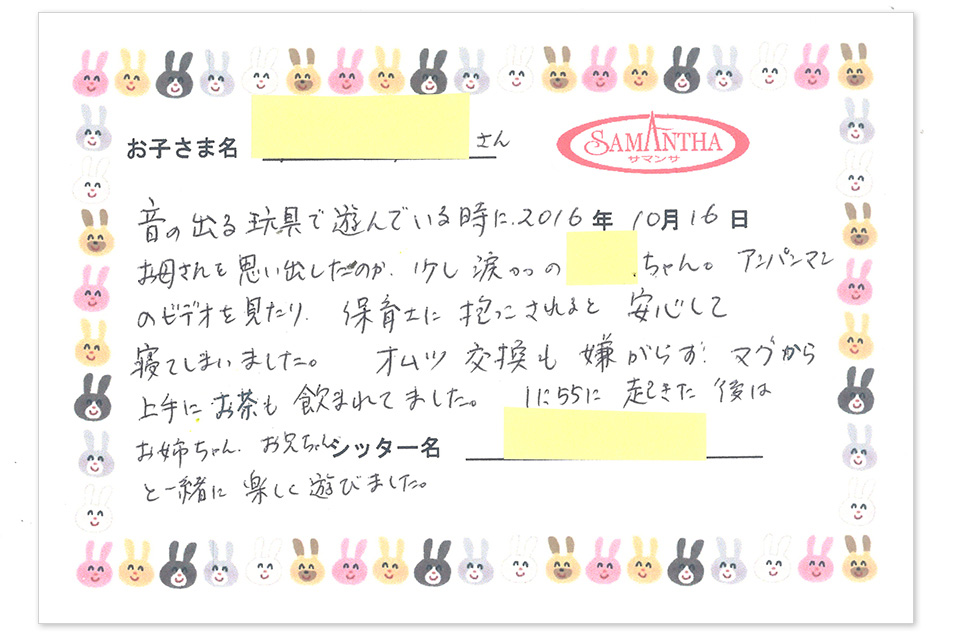 お子さま名 さん
SAMANTHA
サマンサ
2016年 10月16日
音の出る玩具で遊んでいる時に、
お母さんを思い出したのか、少し涙がの ちゃん。アンパンマン
のビデオを見たり、保育士に抱っこされると安心して
寝てしまいました。オムツ交換も嫌がらず、マグから
上手にお茶も飲まれてました。 起きた後は
お姉ちゃん、お兄ちゃん
シッター名
と一緒に楽しく遊びました。